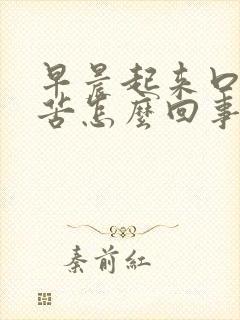 早晨起来口
苦怎麼回事
秦前红